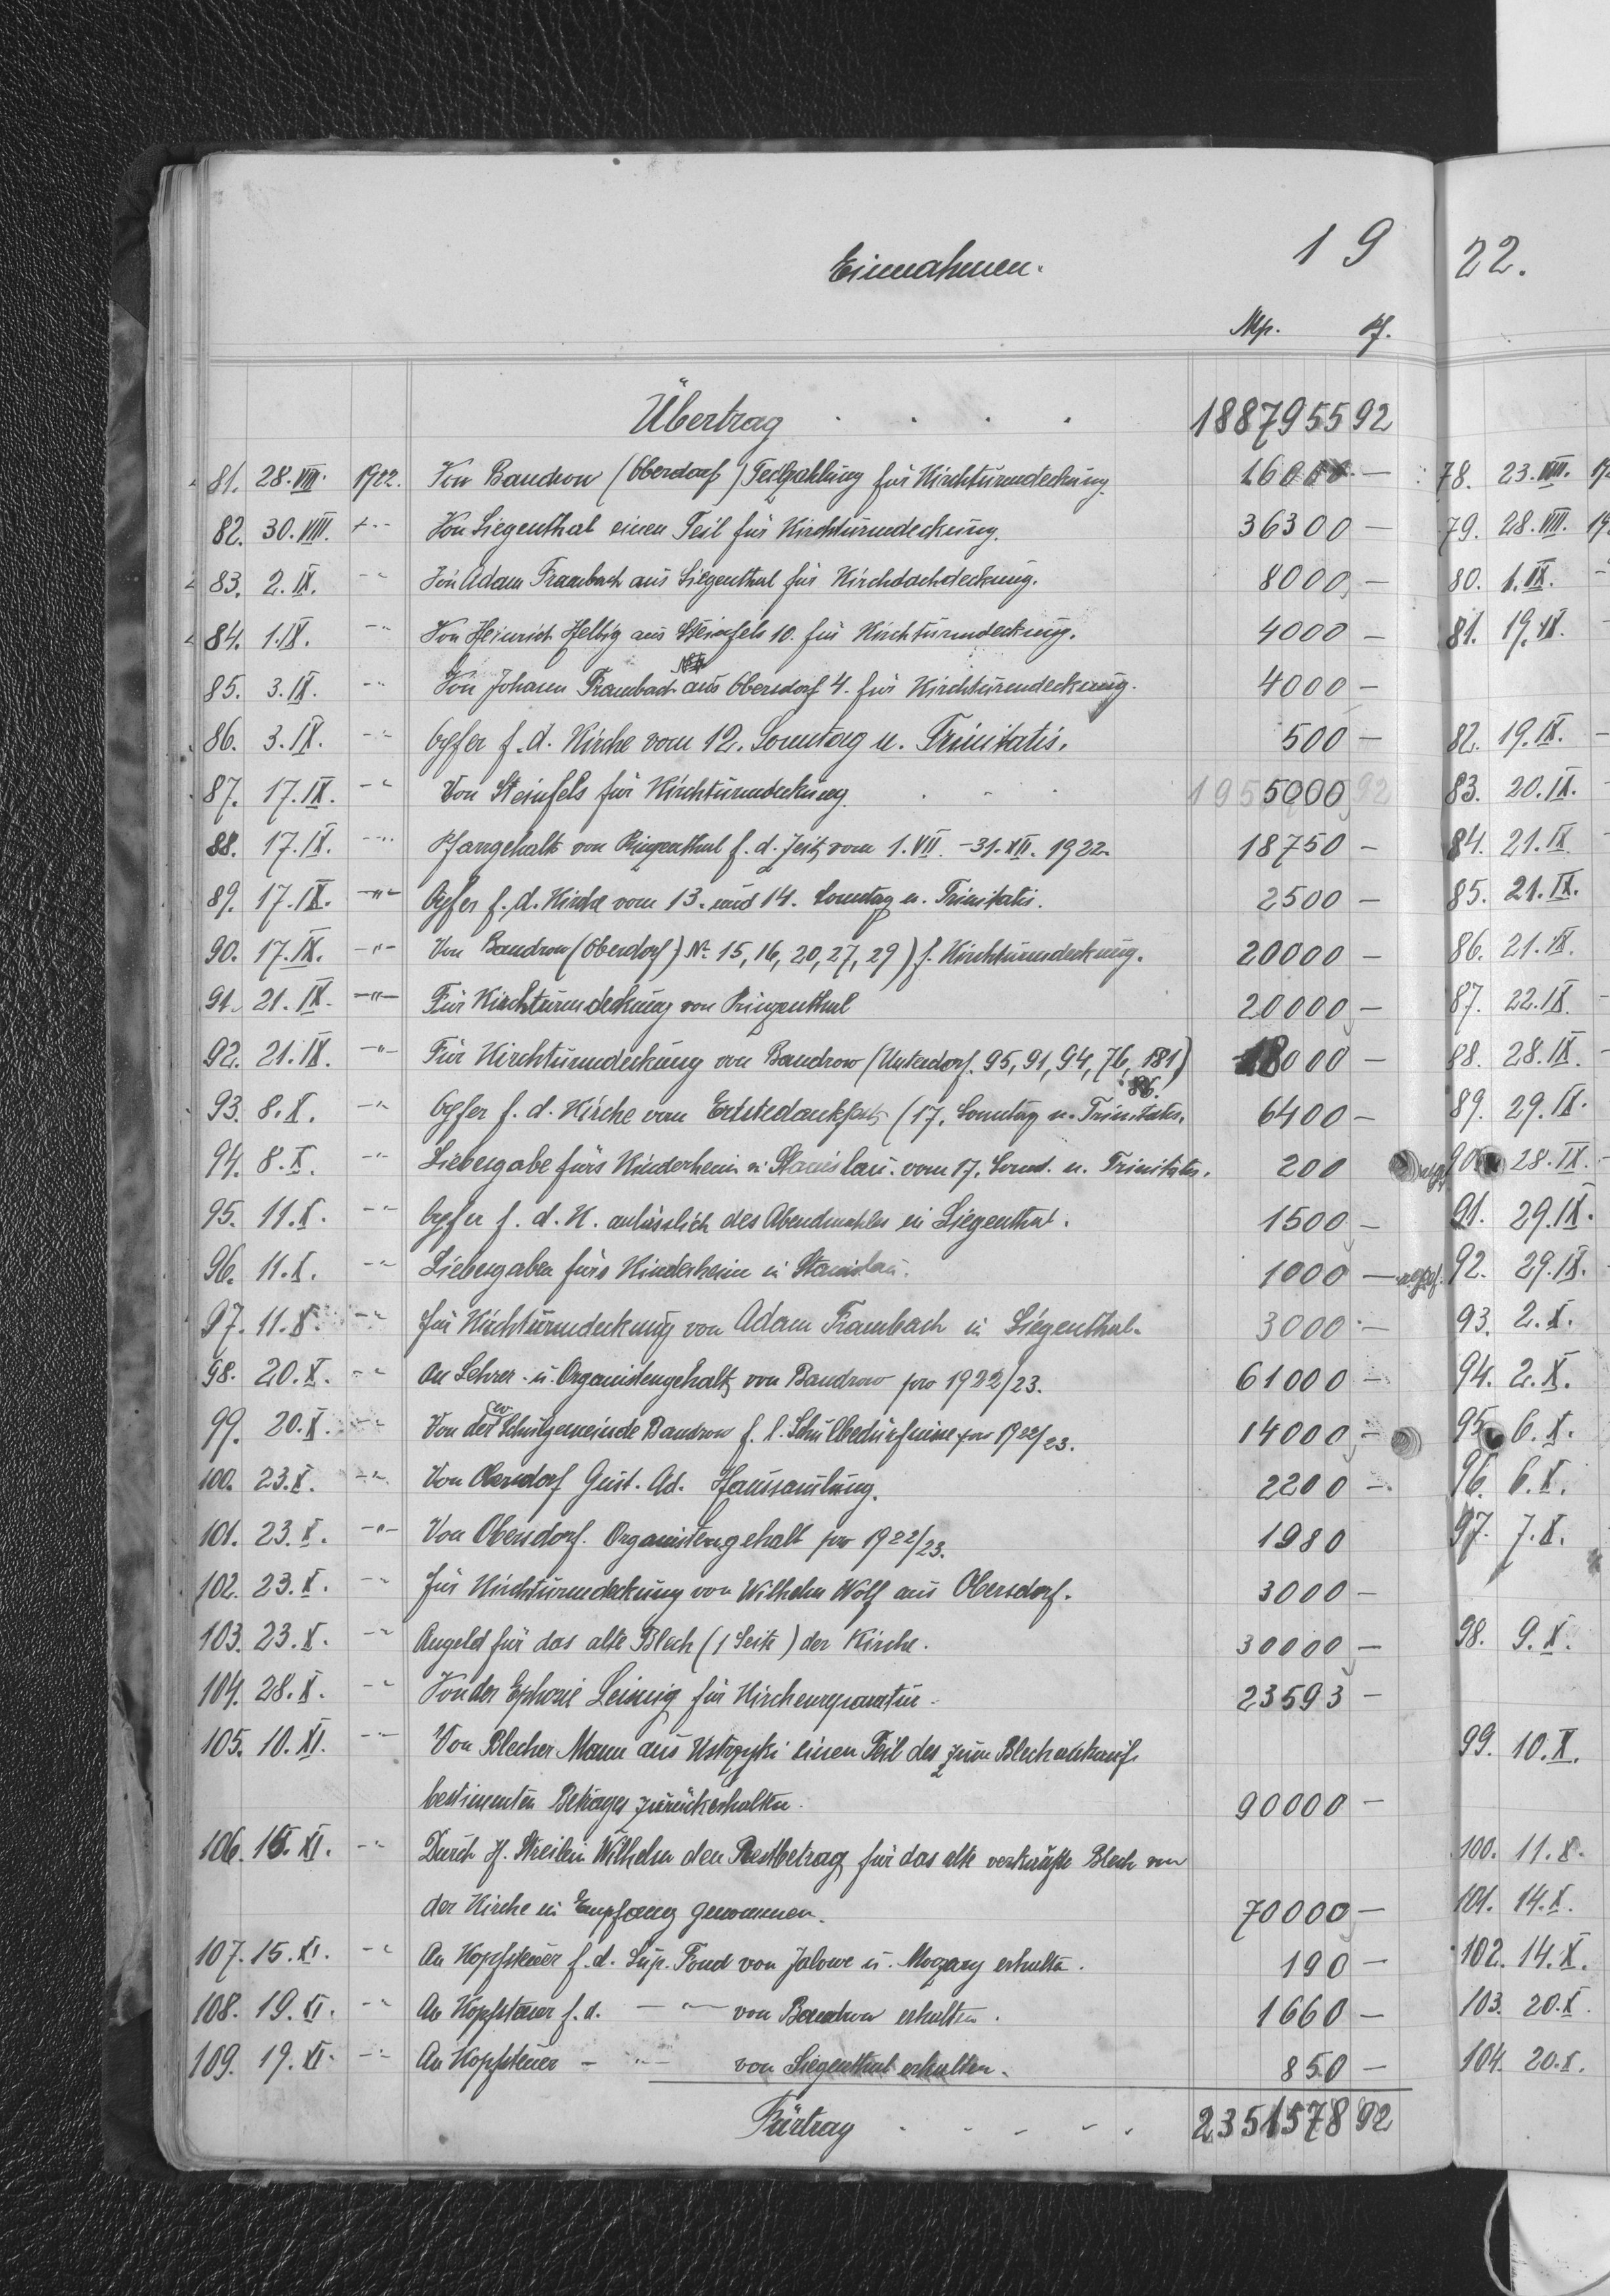 Einnahmen. 19 22.
Mp. Pf.
Übertrag . . . . 1887955 92
81. 28.VIII. 1922. Von Bandrow (Oberdorf) Teilzahlung für Kirchturmdeckung. 16000 —
82. 30.VIII. -"- Von Siegenthal einen Teil für Kirchturmdeckung. 36300 —
83. 2.IX. -"- Von Adam Frambach aus Siegenthal für Kirchdachdeckung. 8000 —
84. 1.IX. -"- Von Heinrich Helbig aus Steinfels 10. für Kirchturmdeckung. 4000 —
85. 3.IX. -"- Von Johann Frambach aus Obersdorf 4. für Kirchturmdeckung. 4000 —
86. 3.IX. -"- Opfer f. d. Kirche vom 12. Sonntag n. Trinitatis. 500 —
87. 17.IX. -"- Von Steinfels für Kirchturmdeckung . . . 5000
88. 17.IX. -"- Pfarrgehalt von Ringenthal f. d. Zeit vom 1.VII. - 31.XII. 1922. 18750 —
89. 17.IX. -"- Opfer f. d. Kirche vom 13. und 14. Sonntag n. Trinitatis. 2500 —
90. 17.IX. -"- Von Bandrow (Oberdorf) Nr. 15, 16, 20, 27, 29) f. Kirchturmdeckung. 20000 —
91. 21.IX. -"- Für Kirchturmdeckung von Ringenthal 20000 —
92. 21.IX. -"- Für Kirchturmdeckung von Bandrow (Unterdorf. 95, 91, 94, 76, 181) 18000 —
86.
93. 8.X. -"- Opfer f. d. Kirche vom Erntedankfest (17. Sonntag n. Trinitatis. 6400 —
94. 8.X. -"- Liebesgabe fürs Kinderheim in Stanislau. vom 17. Sonnt. n. Trinitatis. 200
95. 11.X. -"- Opfer f. d. K. anlässlich des Abendmahles in Siegenthal. 1500 —
96. 11.X. -"- Liebesgaben fürs Kinderheim in Stanislau. 1000 —
97. 11.X. -"- für Kirchturmdeckung von Adam Frambach in Siegenthal. 3000 —
98. 20.X. -"- An Lehrer- u. Organistengehalt von Bandrow pro 1922/23. 61000 —
99. 20.X. -"- Von der ev Schulgemeinde Bandrow f. l. Schulbedürfnisse pro 1922/23. 14000 —
100. 23.X. -"- Von Obersdorf Gust. Ad. Haussamlung. 2200 —
101. 23.X. -"- Von Obersdorf. Organistengehalt pro 1922/23. 1980
102. 23.X. -"- für Kirchturmdeckung von Wilhelm Wolf aus Obersdorf. 3000 —
103. 23.X. -"- Angeld für das alte Blech (1 Seite) der Kirche. 30000 —
104. 28.X. -"- Von der Ephorie Leipzig für Kirchenreparatur. 23593 —
105. 10.XI. -"- Von Blecher Mann aus Ustrzyki einen Teil des zum Blechankauf
bestimmten Betrages zurückerhalten. 90000 —
106. 15.XI. -"- Durch H. Wilhelm den Restbetrag für das alte verkaufte Blech von
der Kirche in Empfang genommen. 70000 —
107. 15.XI. -"- An Kopfsteuer f. d. Sup. Fond von Jalowe u. Moczary erhalten. 190 —
108. 19.XI. -"- An Kopfsteuer f. d. — " — von Bandrow erhalten. 1660 —
109. 19.XI. -"- An Kopfsteuer - " - von Siegenthal erhalten. 850 —
Fürtrag . . . . . 2351578 92
78. 23.VIII. 19
79. 28.VIII. 19
80. 1.IX.
81. 19.IX.
82. 19.IX.
83. 20.IX.
84. 21.IX.
85. 21.IX.
86. 21.IX.
87. 22.IX.
88. 28.IX.
89. 29.IX.
90. 28.IX.
91. 29.IX.
92. 29.IX.
93. 2.X.
94. 2.X.
95. 6.X.
96. 6.X.
97. 7.X.
98. 9.X.
99. 10.X.
100. 11.X.
101. 14.X.
102. 14.X.
103. 20.X.
104. 20.X.